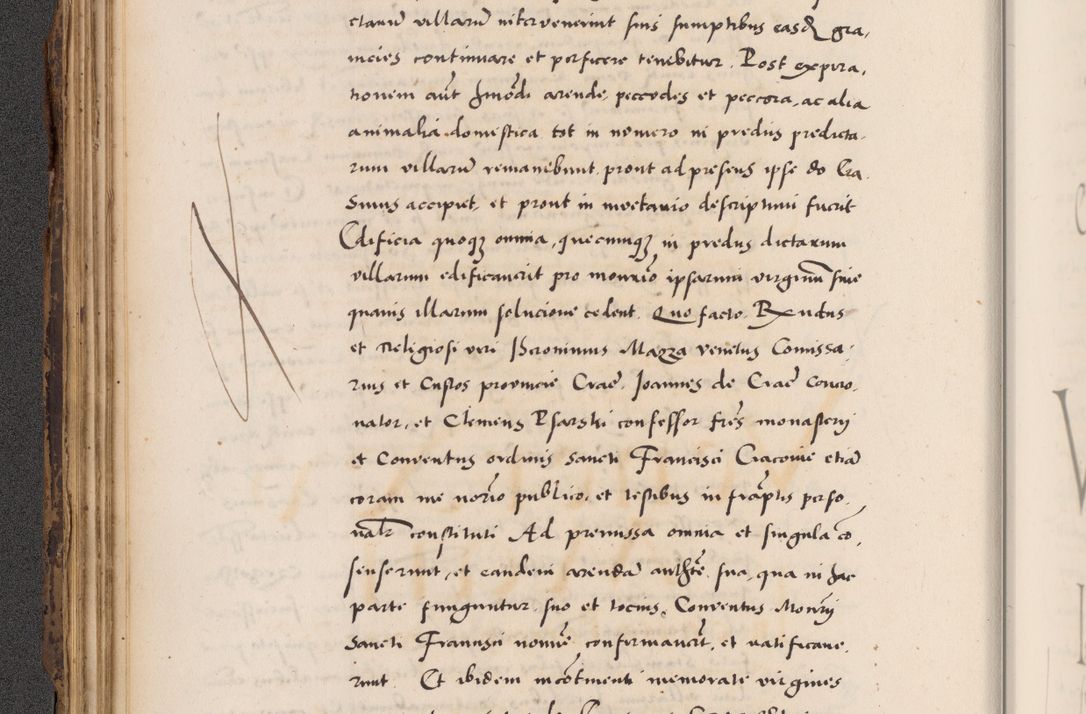 ctarum villarum nitervenerint suis sumptibus easdem gra,
incies continuare et perficere tenebitur. Post expira,
tionem aut hmodi arende, peccudes et peccora, ac alia
animalia domestica tot in numero in prediis predicta,
rum villarum remanebunt, prout ad presens ipse do Cra,
Suius accipiet, et prout in inventario descriptum fuerit
Edificia quoque omnia, quecumque in prediis dictarum
villarum edificaverit pro monrio ipsarum virginum sine
quavis illarum solucione cedent. Quo facto. Rxndus
et Religiosi viri Hieronimus Mazza venetus Comissa,
rius et Custos provincie Crae, Joannes de Crae Concio,
nator, et Clemens Psarski confessor fres monasterij
et Conventus ordinis Sancti Francisci Cracovie etiam
coram me norio publico, et testibus infraptis perso,
nalr constituti Ad premissa omnia et singula co,
senserunt, et eandem arendam authte sua, qua in hac
parte funguntur, suo et tocius, Conventus Monrij
Sancti Francisci nomie confirmaverit, et ratificave,
runt. Et ibidem incotinenti memorate virgines